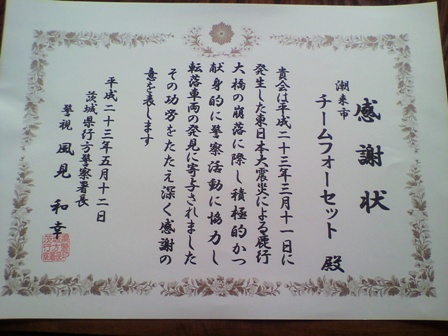 感謝状
潮来市
チームフォーセット 殿
貴会は平成二十三年三月十一日に
発生した東日本大震災による鹿行
大橋の崩落に際し積極的かつ
献身的に警察活動に協力し
転落車両の発見に寄与されました
その功労をたたえ深く感謝の
意を表します
平成二十三年五月十二日
茨城県行方警察署長
警視 風見和幸